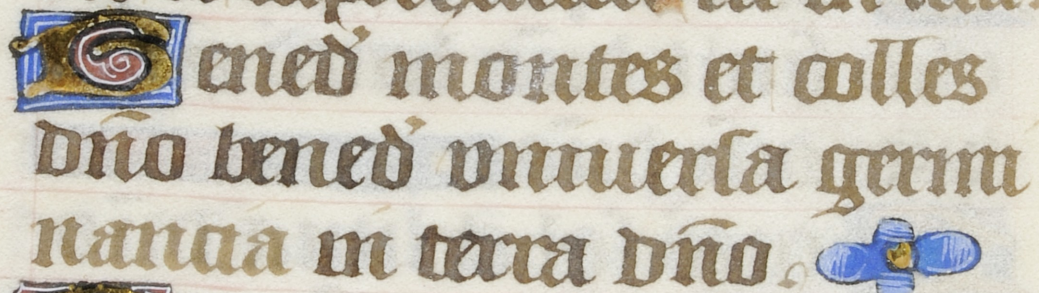 Bened' montes et colles
dño bened' vniuersa germi
nancia in terra dño.